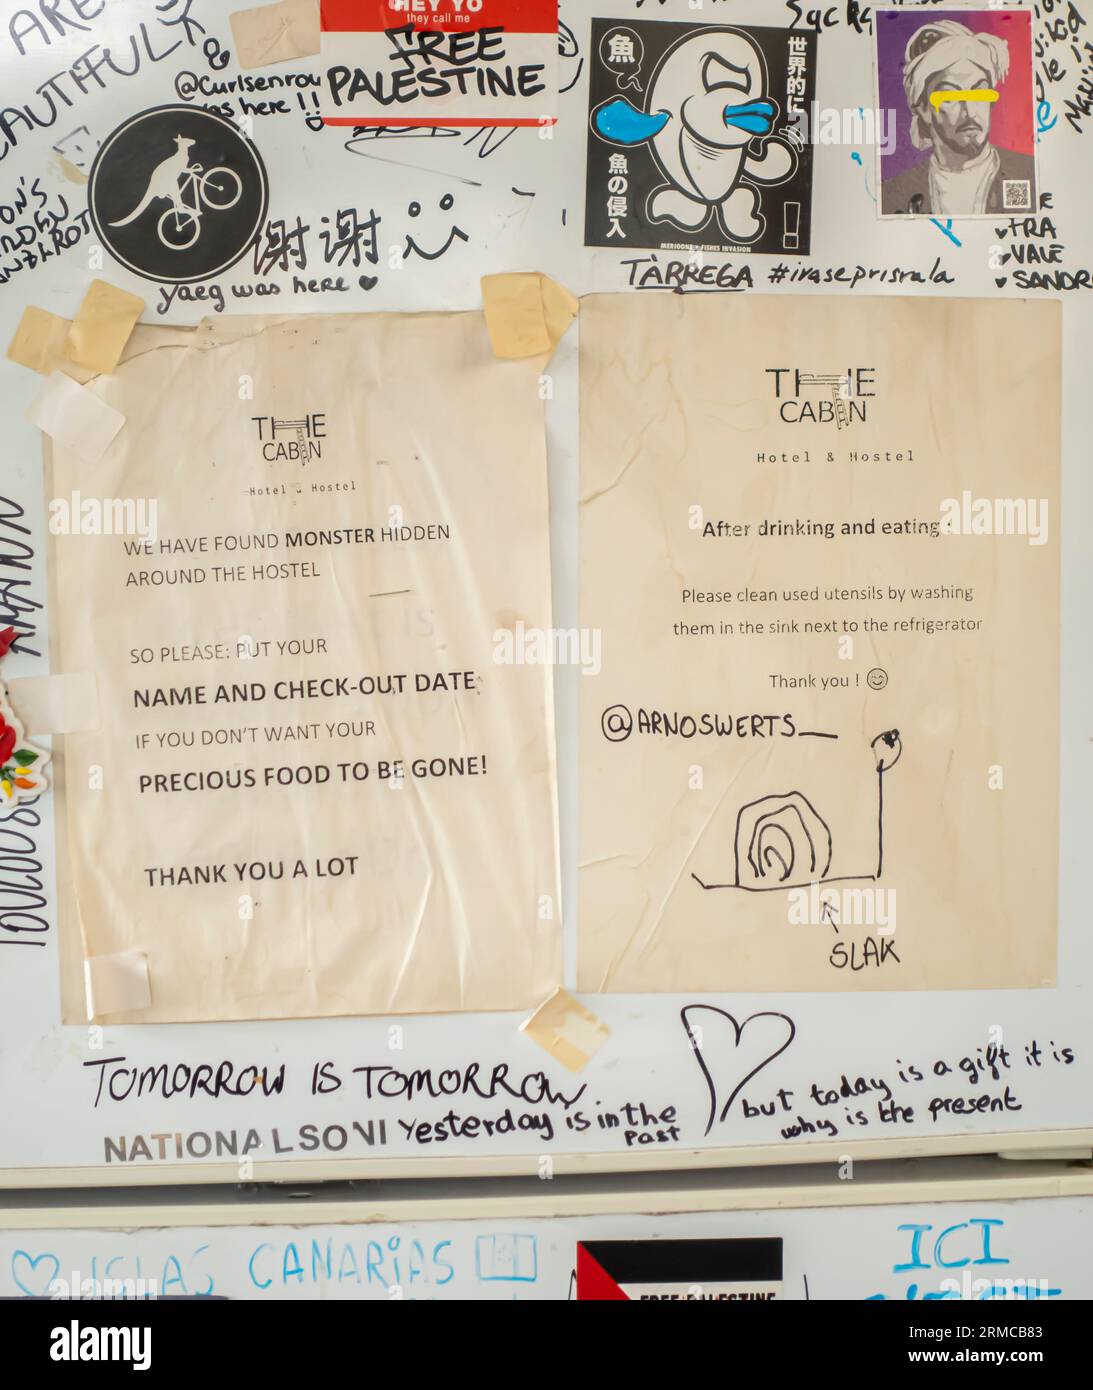 ARE
BEAUTIFUL
@Curlsenrou
was here !!
HEY YO
they call me
FREE
PALESTINE
魚
世界的に
魚の侵入
MERIOONE FISHES INVASION
谢谢
yaeg was here
TÀRREGA #iraseprisrala
FRA
VALE
SANDR
THE
CABIN
Hotel & Hostel
WE HAVE FOUND MONSTER HIDDEN
AROUND THE HOSTEL
SO PLEASE: PUT YOUR
NAME AND CHECK-OUT DATE
IF YOU DON'T WANT YOUR
PRECIOUS FOOD TO BE GONE!
THANK YOU A LOT
THE
CABIN
Hotel & Hostel
After drinking and eating :
Please clean used utensils by washing
them in the sink next to the refrigerator
Thank you ! 
@ARNOSWERTS__
SLAK
TOMORROW IS TOMORROW
Yesterday is in the
past
but today is a gift it is
why is the present
NATIONAL SONI
ISLAS CANARIAS
FREE PALESTINE
ICI
alamy
Image ID: 2RMCB83
www.alamy.com